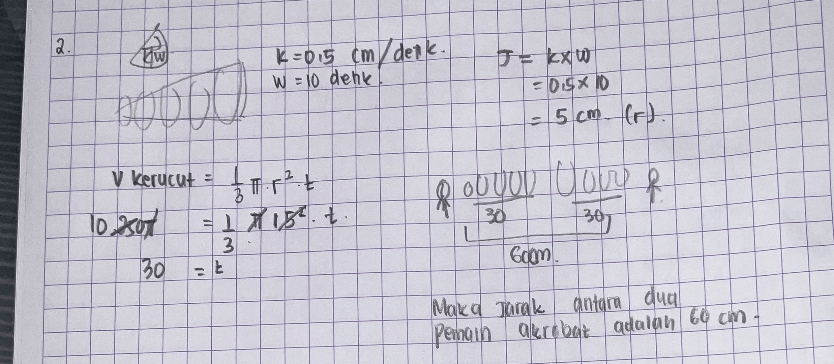 2.
K = 0.5 cm/detik.
W = 10 detik.
J = k x w
= 0.5 x 10
= 5 cm (r).
V kerucut = 1/3 π . r² . t
= 1/3 π 15² . t.
30 = t
30 30
60cm.
Maka Jarak antara dua
Pemain akrobat adalah 60 cm.